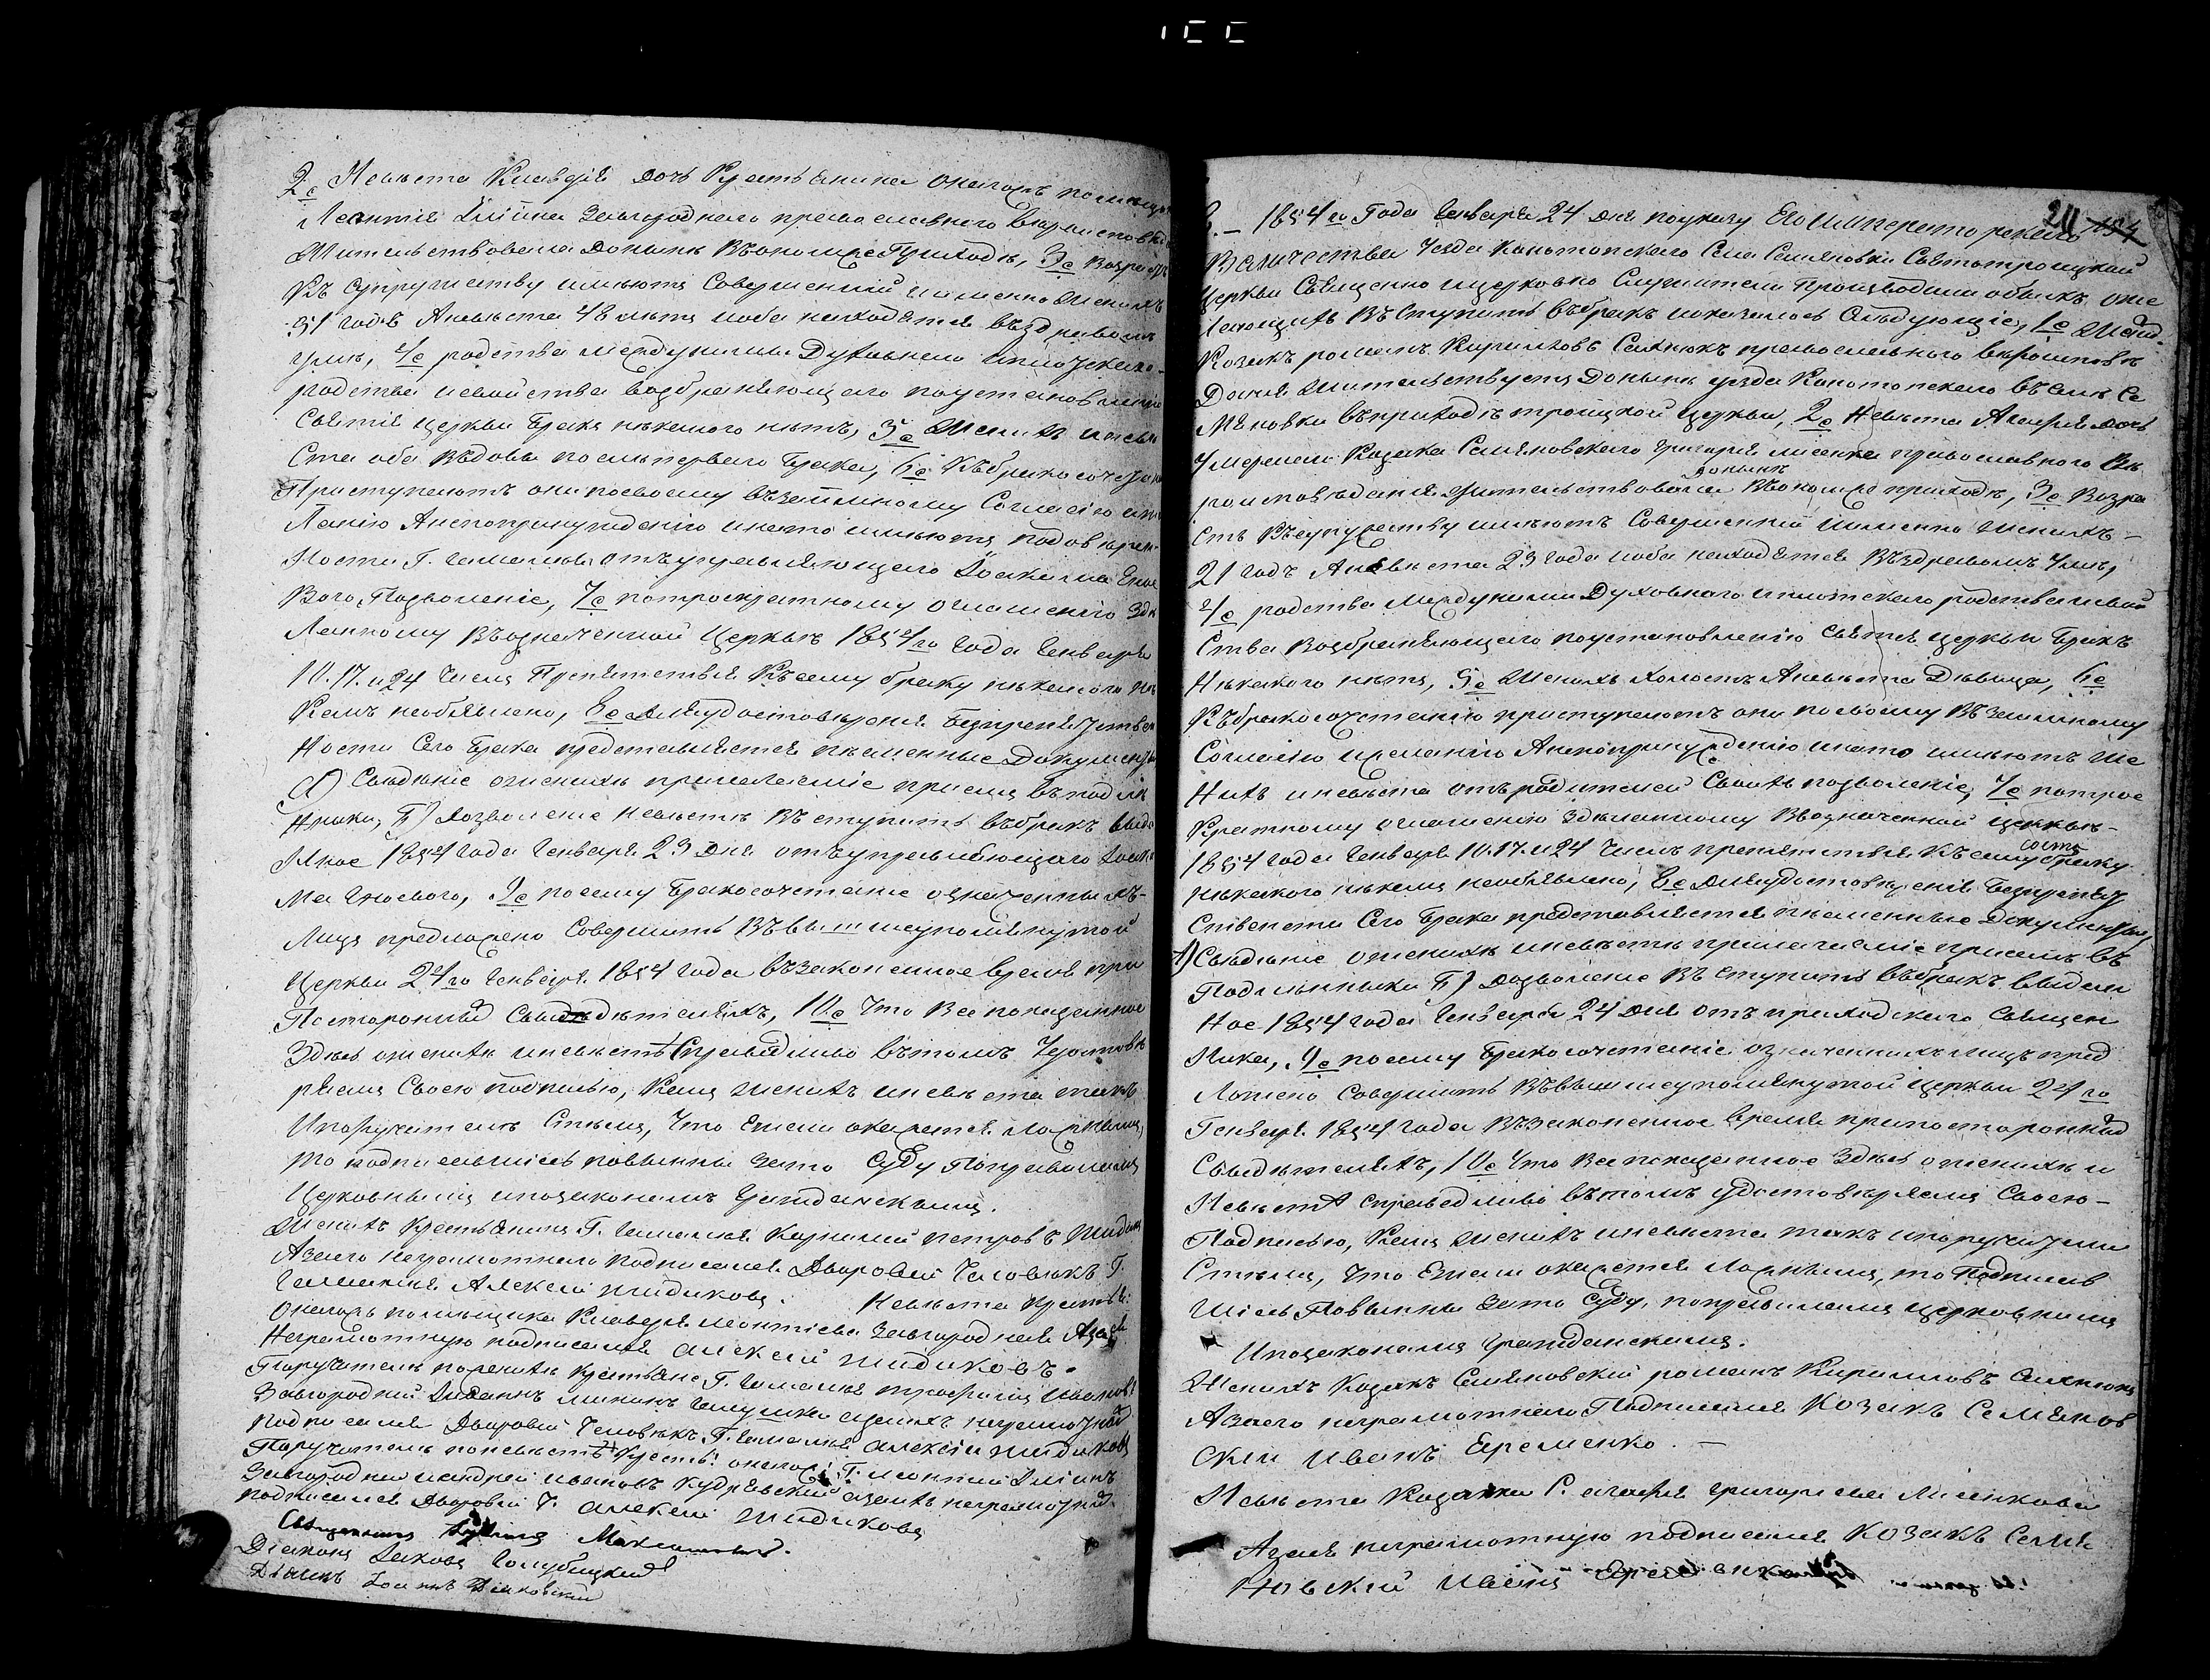 2е Невѣста Клавдія дочь Крестьянина онагожъ помѣщи
Леонтія Иліина Завгороднего православного вѣроисповѣд
Жительствовала донынѣ Въономже Приходѣ, 3е Возрастъ
Къ супружеству имѣютъ Совершенный именно женихъ
51 годъ Аневѣста 48 лѣтъ иоба находятся въздравомъ
умѣ, 4е родства междуними Духовного Иплотскаго
родства исвойства возбраняющаго поустановленію
Святія Церкви Бракъ нѣкакого нѣтъ, 5е Женихъ иневѣ
ста оба Вдовы послѣпервого Брака, 6е Къбракосочетан
Приступаютъ они посвоему взаѣмному Согласію иже
Ланію Анепопринужденію инато имѣютъ
отъуправляющаго
Вого, Позволеніе, 7е потроекратному оглашенію Здѣ
Ланному Въозначенной Церквѣ 1854го Года Генваря
10. 17. и 24 Чиселъ Препятствія Къ сему браку нѣкакого нѣ
Кемъ необявлено, 8е Дляудостовѣренія Безпрепятствен
Ности Сего Брака представляется писменные Документы
А) Свѣдѣніе оженихѣ прилагаеміе приемъ въподлѣ
Нники, Б) Дозволеніе Невѣстѣ Вступить въбракъ выда
Мное 1854 Года Генваря 23 Дня отъуправляющаго
9е посему Бракосочетаніе означенныхъ
Лицъ предложено Совершить Въвышеупомянутой
Церкви 24го Генваря 1854 Года въЗаконенное время при
Постороннихъ Свидѣтеляхъ, 10е Что Все показанное
Здѣсь оженихѣ иневѣстѣ Справѣдливо вътомъ Удостовѣ
ряемъ Своею подписью, Какъ женихъ иневѣста такъ
Ипоручители Стѣмъ, Что Ежели окажется ложнымъ,
То подписавшіесь повинны зато Суду Поправиламъ
Церковнымъ ипозаконамъ Гражданскимъ.
Женихъ Крестьянинъ Г. Петровъ
Азаего неграмотного подписался Дворовый Человѣкъ Г.
Алексѣй Жидиковъ. Невѣста Крестья:
Онагожъ помѣщика Клавдія Леонтіева Завгородняя Азаея
Неграмотную подписался Алексѣй Жидиковъ.
Поручитель поженихѣ Крестьяне Г. Трофимъ Ивановъ
Завгородній азаихъ неграмотныхъ
Подписался Дворовый Человѣкъ Г. Алексѣй Жидиковъ
Поручитель поневѣстѣ Крестья: онагожъ Г. Леонтій Иліинъ
Завгородній иандрей Ивановъ Кудрявскій азаихъ неграмотныхъ
Подписался Дворовый Ч. Алексѣй Жидиковъ
Священникъ
Діаконъ Іаковъ Голубицкій
Дьячекъ Іоаннъ Діаковскій
211 134
8. – 1854го Года Генваря 24 дня поуказу Его Императорского
Величества Уезда Конотопского Села Семяновки Святотроицкой
Церкви Священно ицерковно Служители Производили обыскъ оже
Лающихъ Вступить въбракъ ипоказалось Слѣдующіе, 1е Жених
Козакъ романъ Кириловъ православного вѣроисповѣ
Данія Жительствуетъ Донынѣ уезда Конотопского въСелѣ Се
Мяновки въприходѣ троицкой Церкви, 2е Невѣста Агафія дочь
Умершаго Козака Семяновского Григорія лисенка православного Вѣ
донынѣ
роисповѣданія Жительствовала Въономже приходѣ, 3е Возра
стъ Късупружеству имѣютъ Совершенній Именно женихъ –
21 годъ Аневѣста 23 года иоба находятся Въздравомъ Умѣ,
4е родства Междуними Духовного иплотского родства исвой
Ства Возбраняющаго поустановленію святія Церкви Бракъ
Нѣкакого нѣтъ, 5е Женихъ Холостъ Аневѣста Дѣвица, 6е
Къбракосочетанію приступаютъ они посвоему Взаимному
Согласію ижеланію Анепопринужденію инато имѣютъ же
Нихъ иневѣста отъродителей Своихъ позволеніе, 7е потрое
Кратному оглашенію Здѣланному Въозначенной Церквѣ –
1854 Года Генваря 10. 17. и 24 Чиселъ препятствія Къ сему браку
нѣкакого нѣкемъ необявлено, 8е Дляудостовѣренія Безпрепят
Ствености Сего Брака представляется писменные Документы,
А) Свѣдѣніе оженихѣ иневѣстѣ прилагаеміе приемъ въ
Подлѣнники Б) Дозволеніе Вступить въбракъ выдан
Ное 1854 года Генваря 24 дня отъприходского Священ
Ника, 9е посему Бракосочетаніе означенныхълицъ пред
Ложено Совершить Въвышеупомянутой Церкви 24го
Генваря 1854 Года ВъЗаконенное время припостороннихъ
Свидѣтеляхъ, 10е Что Все показанное Здѣсь оженихѣ и
Невѣстѣ справедливо вътомъ удостовѣряемъ Своею –
Подписью, Какъ женихъ иневѣста такъ ипоручители
Стѣмъ, Что Ежели окажется ложнымъ, то Подписав
Шіесь Повинны Зато Суду, поправиламъ Церковнымъ
Ипозаконамъ Гражданскимъ.
Женихъ Козакъ Семяновскій романъ Кириловъ
Азаего неграмотного Подписался Козакъ Семянов
скій Иванъ Еременко. –
Невѣста Козачка С. Агафія Григоріева Лисенкова
Азаея неграмотную подписался Козакъ Семя
Новскій Иванъ Еременко